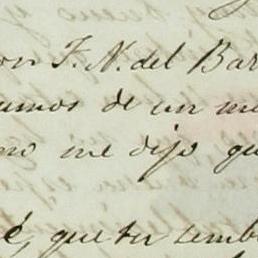 on F. N. del Bar
umos de un me
no me dijo qu
é, que tu semb